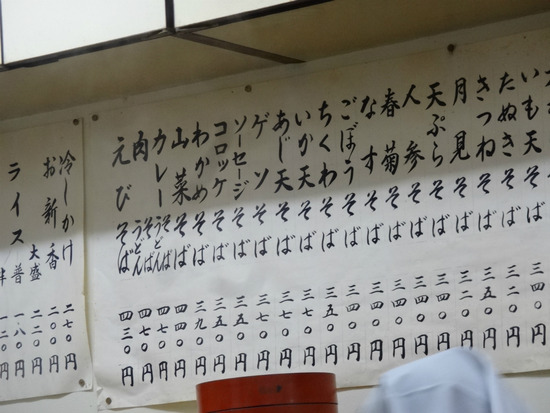 いも天そば 三四〇円
たぬきそば 三二〇円
きつねそば 三五〇円
月見そば 三二〇円
天ぷらそば 三四〇円
人参そば 三四〇円
春菊そば 三四〇円
なすそば 三四〇円
ごぼうそば 三四〇円
ちくわそば 三五〇円
いか天そば 三七〇円
あじ天そば 三七〇円
ゲソそば 三七〇円
ソーセージそば 三五〇円
コロッケそば 三五〇円
わかめそば 三九〇円
山菜そば 四四〇円
カレーそばうどん 四七〇円
肉そばうどん 四七〇円
えびそば 四三〇円
冷しかけ 二七〇円
お新香 円
大盛 二二〇円
ライス 普 一八〇円
半 一二〇円